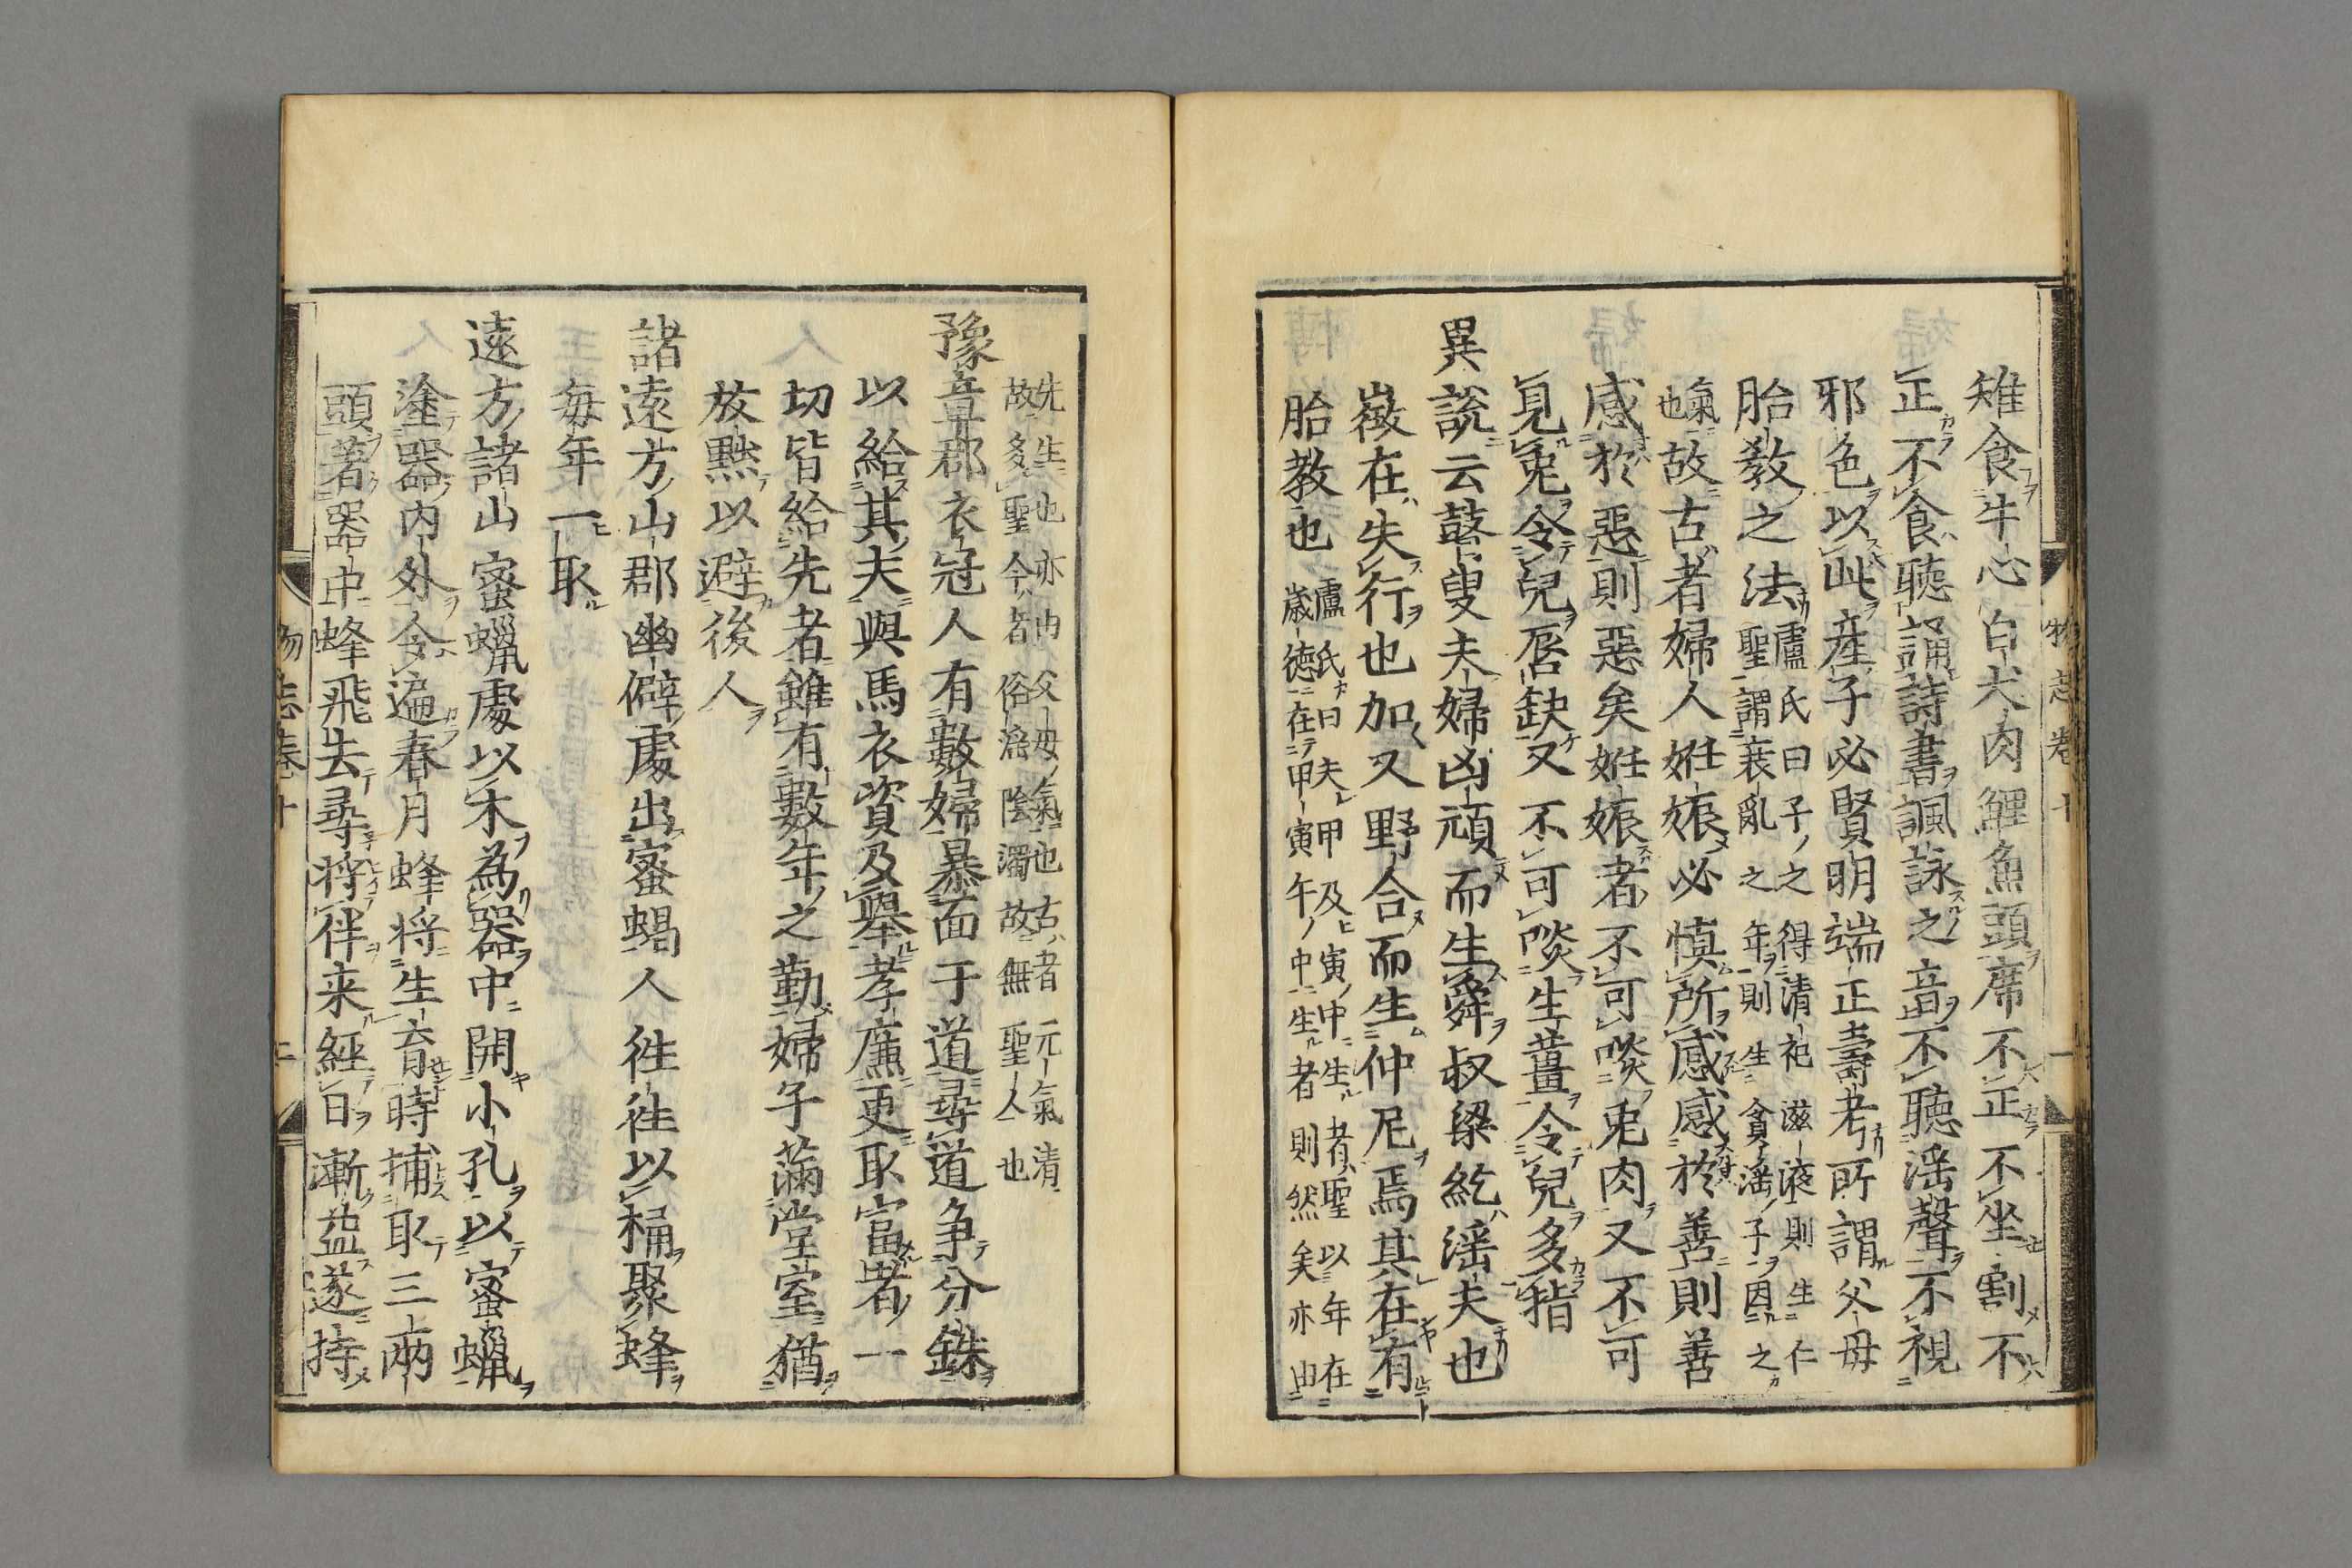 雉食牛心白犬肉鯉魚頭席不正不坐割不
正不食聽誦詩書諷詠之音不聽淫聲不視
邪色以此産子必賢明端正壽考所謂父母
胎教之法盧氏曰子之得清祀滋液則生仁
聖謂衰亂之年則生貪淫子因之
氣也故古者婦人姙娠必慎所感感於善則善
感於惡則惡矣姙娠者不可啖兎肉又不可
見兎令兒唇缺又不可啖生薑令兒多指
異說云瞽叟夫婦凶頑而生舜叔梁紇淫夫也
徵在失行也加又野合而生仲尼焉其在有
胎教也
盧氏曰夫甲及寅中生者聖以年在
歳德在甲寅午中生者則然矣亦由
先生也亦由父母氣也古者元氣清
故多聖今者俗淫陰濁故無聖人也
豫章郡衣冠人有數婦暴面于道尋道争分銖
以給其夫與馬衣資及舉孝廉更取富者一
切皆給先者雖有數年之勤婦子滿堂室猶
放黙以避後人
諸遠方山郡幽僻處出蜜蝎人徃徃以桶聚蜂
毎年一取
遠方諸山蜜蠟處以木為器中開小孔以蜜蠟
塗器内外令遍春月蜂将生育時捕取三兩
頭著器中蜂飛去尋将伴来經日漸益遂持
物志卷十
物志卷十